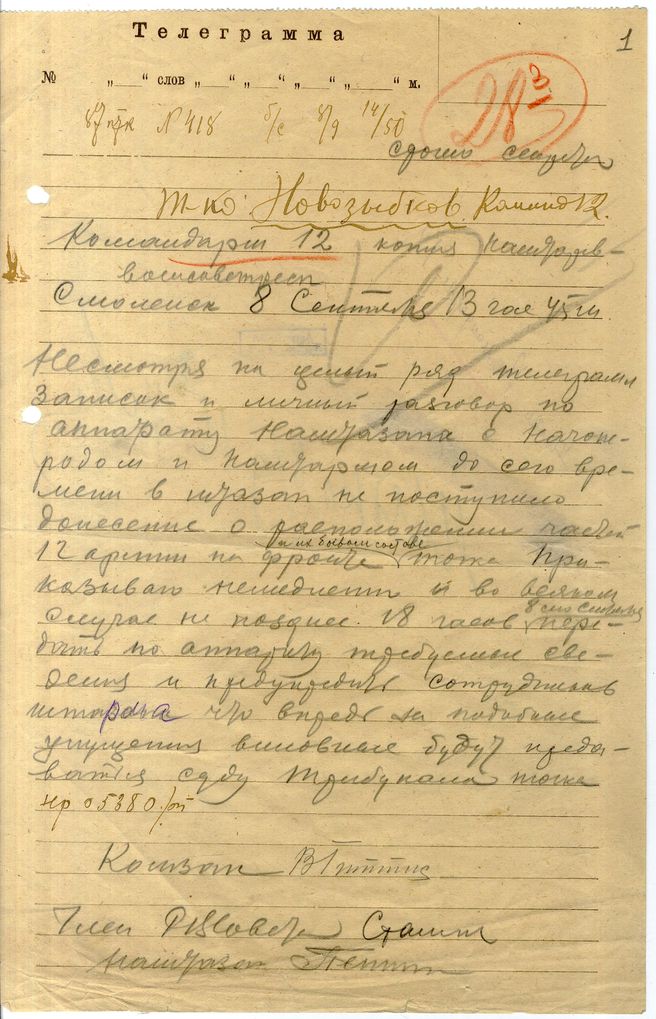 1
Телеграмма
№ „ “ слов „ “ „ “ „ “ „ “ м.
N 418 б/с 8/9 14/50
28
строго секретн
Новозыбков 12.
Командарм 12 копия наштарев-
военсоветресп
Смоленск 8 Сентября 13 час 45 м.
Несмотря на целый ряд телеграмм
записок и личный разговор по
аппарату Наштазапа с Начопе-
родом и Наштармом до сего вре-
мени в штазап не поступило
донесение о расположении частей
12 армии на фронте и их боевом составе точка При-
казываю немедленно и во всяком
случае не позднее 18 часов 8 сего сентября пере-
дать по аппарату требуемые све-
дения и предупредить сотрудников
штарма что впредь за подобные
упущения виновные будут преда-
ваться суду трибунала точка
нр 05380/оп
Комзап ВГиттис
Член РВСовета Сталин
Наштазап Петин